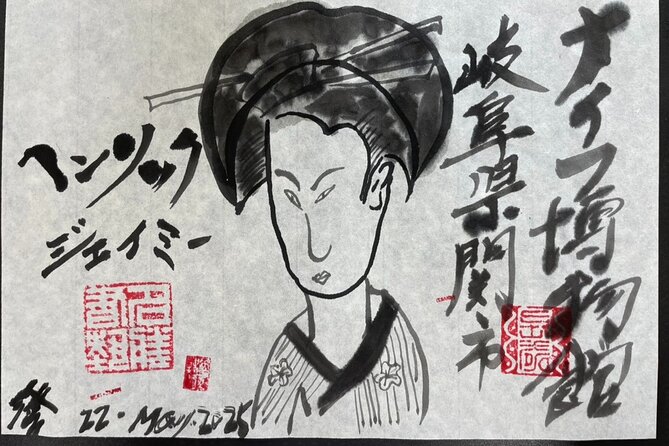 ナイフ博物館
岐阜県関市
ヘンリック
ジェイミー
22. May. 2025